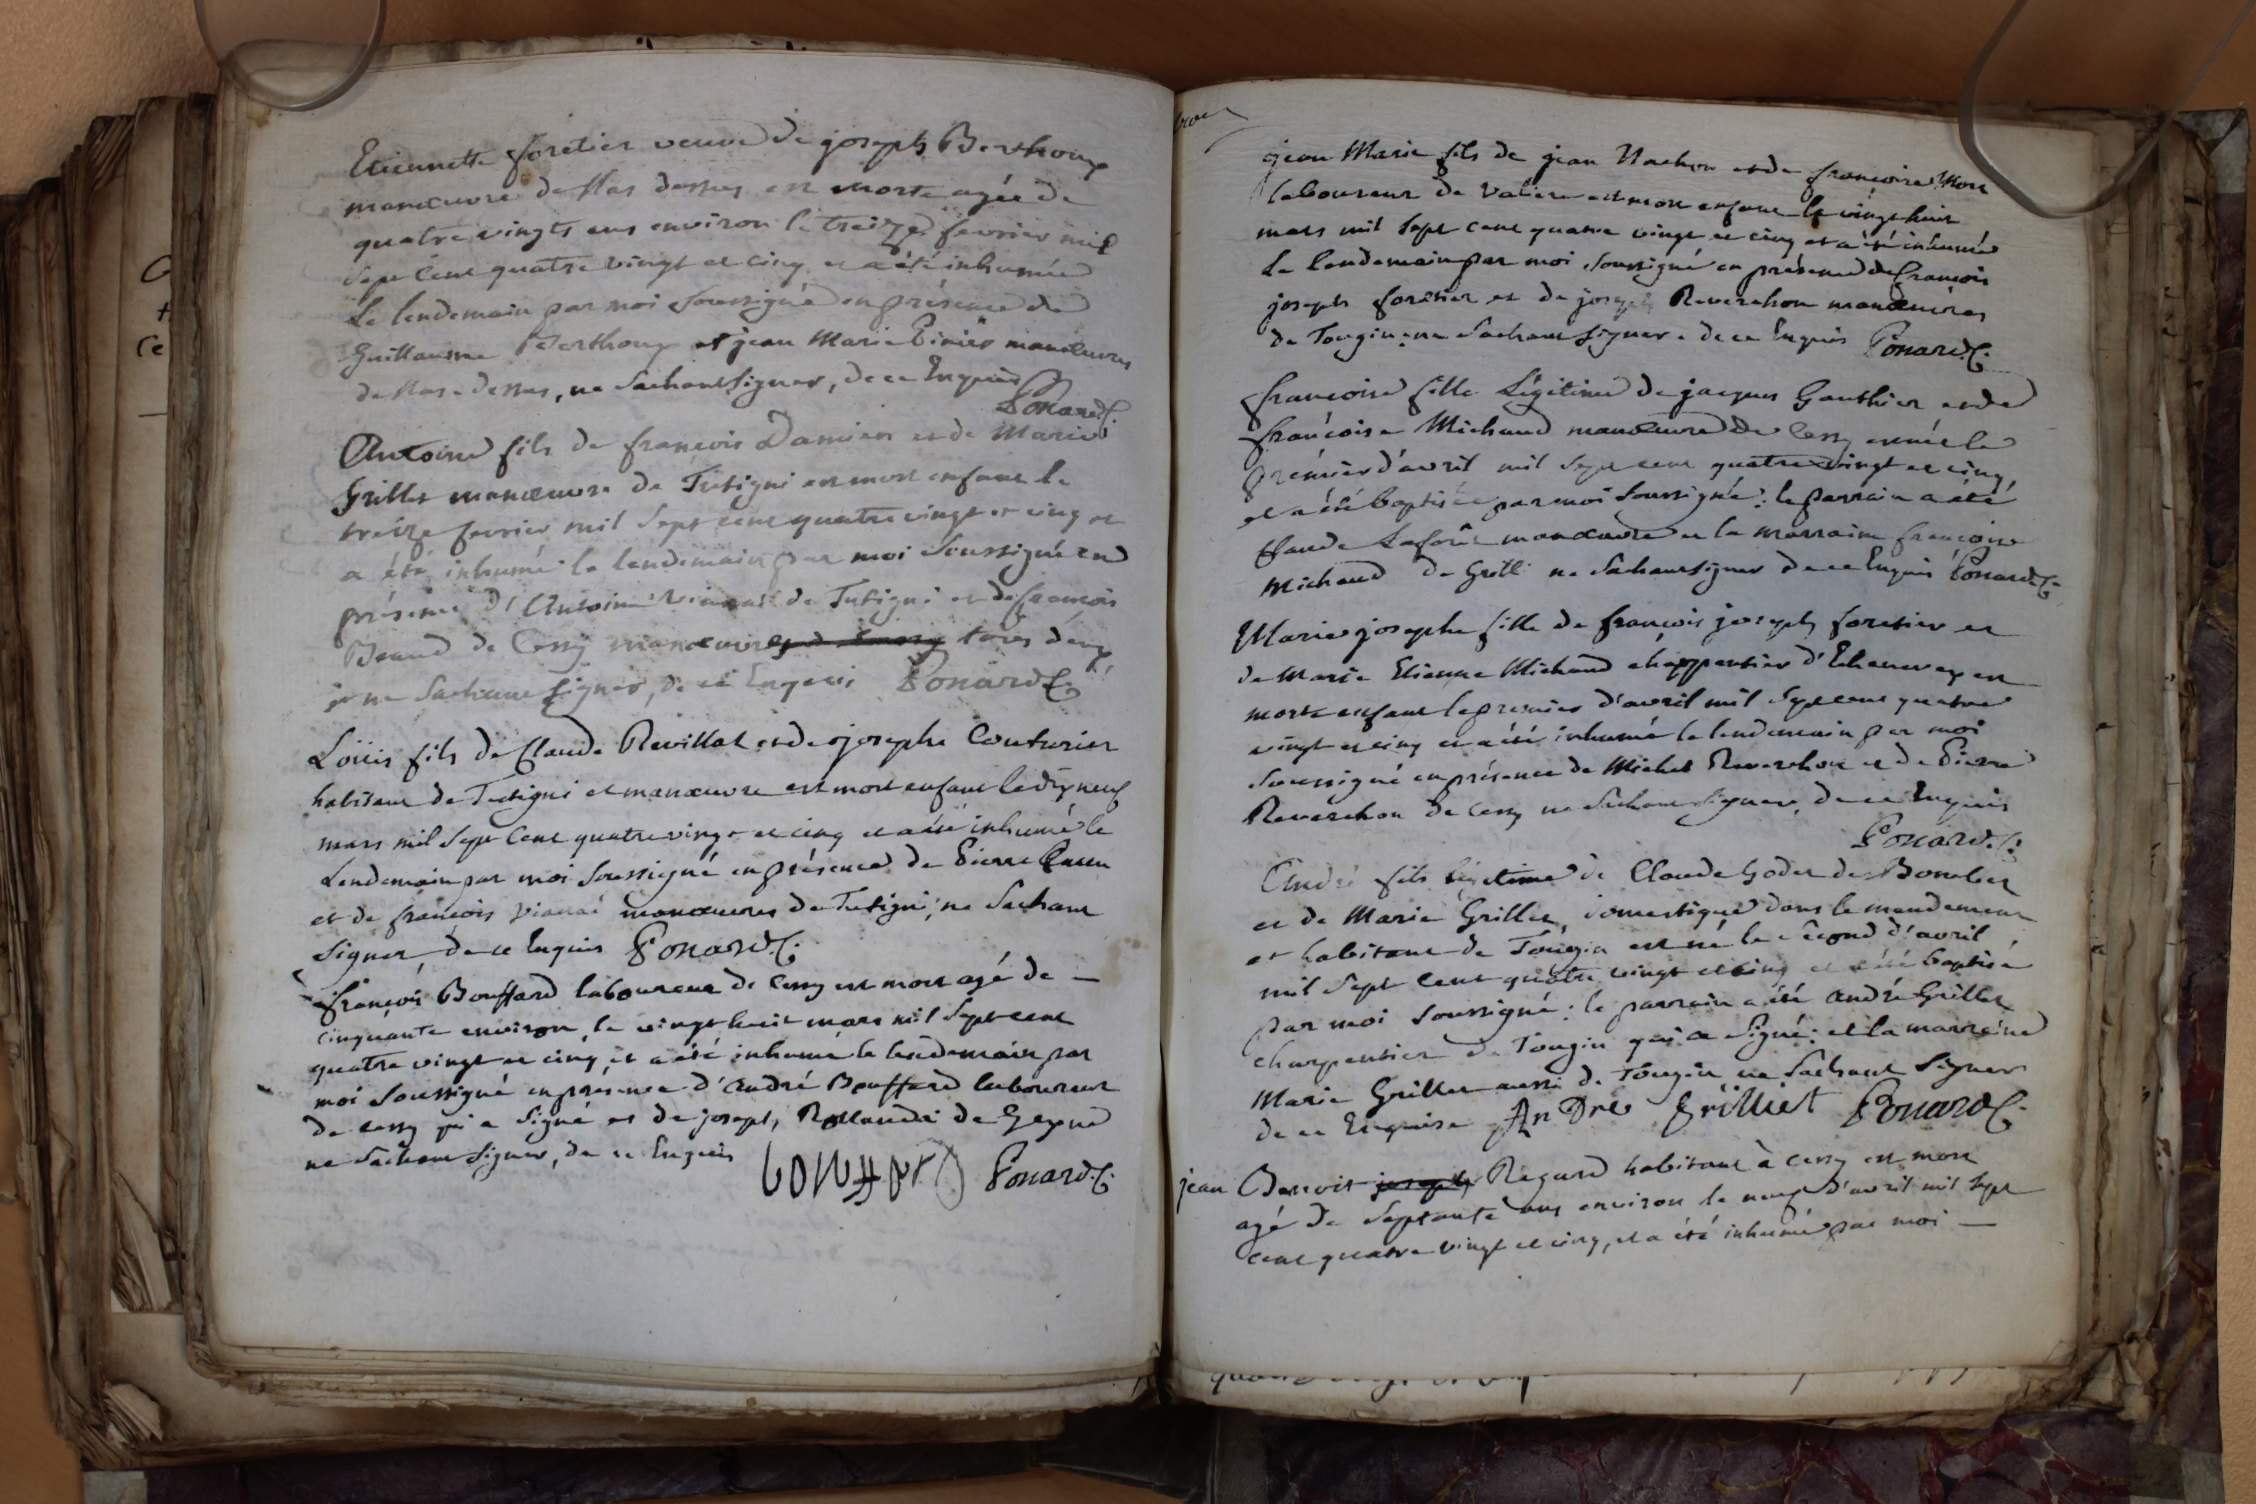 Etiennette foretier veuve de joseph Berthoux
manœuvre de Mas dessus est morte agée de
quatre vingts ans environ le treize fevrier mil
sept cent quatre vingt et cinq et a été inhumée
le lendemain par moi soussigné en présence de
Guillaume Berthoux et jean Marie manœuvres
de Mas-dessus, ne sachant signer, de ce Enquis
Ponard C.
Antoine fils de françois Damien et de Marie
Grillet manœuvre de Tutigni est mort enfant le
treize fevrier mil sept cent quatre vingt et cinq et
a été inhumé le lendemain par moi soussigné en
présence d'Antoine de Tutigni et de françois
Beaud de Cessy manœuvres de Cessy tous deux
et ne sachant signer, de ce Enquis Ponard C.
Loüis fils de Claude Revillat et de josephe Couturier
habitant de Tutigni et manœuvre est mort enfant le dix neuf
mars mil sept cent quatre vingt et cinq et a été inhumé le
lendemain par moi soussigné en présence de Pierre
et de françois manœuvres de Tutigni, ne sachant
signer, de ce Enquis Ponard C.
françois Bouffard laboureur de Cessy est mort agé de —
cinquante environ, le vingt huit mars mil sept cent
quatre vingt et cinq, et a été inhumé le lendemain par
moi soussigné en présence d'andré Bouffard laboureur
de Cessy qui a signé et de joseph, de Gex
ne sachant signer, de ce Enquis Ponard C.
jean Marie fils de jean Nachon et de françoise
laboureur de est mort enfant le vingt huit
mars mil sept cent quatre vingt et cinq et a été inhumé
le lendemain par moi soussigné en présence de françois
joseph foretier et de joseph Reverchon manœuvres
de Tougin ne sachant signer de ce Enquis Ponard C.
françoise fille Légitime de jacques Gauthier et de
françoise Michaud manœuvre de Cessy est née le
premier d'avril mil sept cent quatre vingt et cinq
et a été baptisée par moi soussigné: le parrain a été
Claude Laforêt manœuvre et la marraine françoise
Michaud de Grilli ne sachant signer de ce Enquis Ponard C.
Marie josephe fille de françois joseph foretier et
de Marie Etienne Michaud charppentier d'Echenevex est
morte enfant le premier d'avril mil sept cent quatre
vingt et cinq et a été inhumé le lendemain par moi
soussigné en présence de Michel Reverchon et de Pierre
Reverchon de Cessy ne sachant signer, de ce Enquis
Ponard C.
André fils légitime de Claude Godet de
et de Marie Grillet, domestique dans le mandement
et habitant de Tougin est né le second d'avril
mil sept cent quatre vingt et cinq et a été baptisé
par moi soussigné: le parrain a été andré Grillet
charpentier de Tougin qui a signé: et la marraine
Marie Grillet aussi de Tougin ne sachant signer
de ce Enquise AnDré Grilliet Ponard C.
jean Benoit joseph Regard habitant à Cessy est mort
agé de septante ans environ le neuf d'avril mil sept
cent quatre vingt et cinq, et a été inhumé par moi —